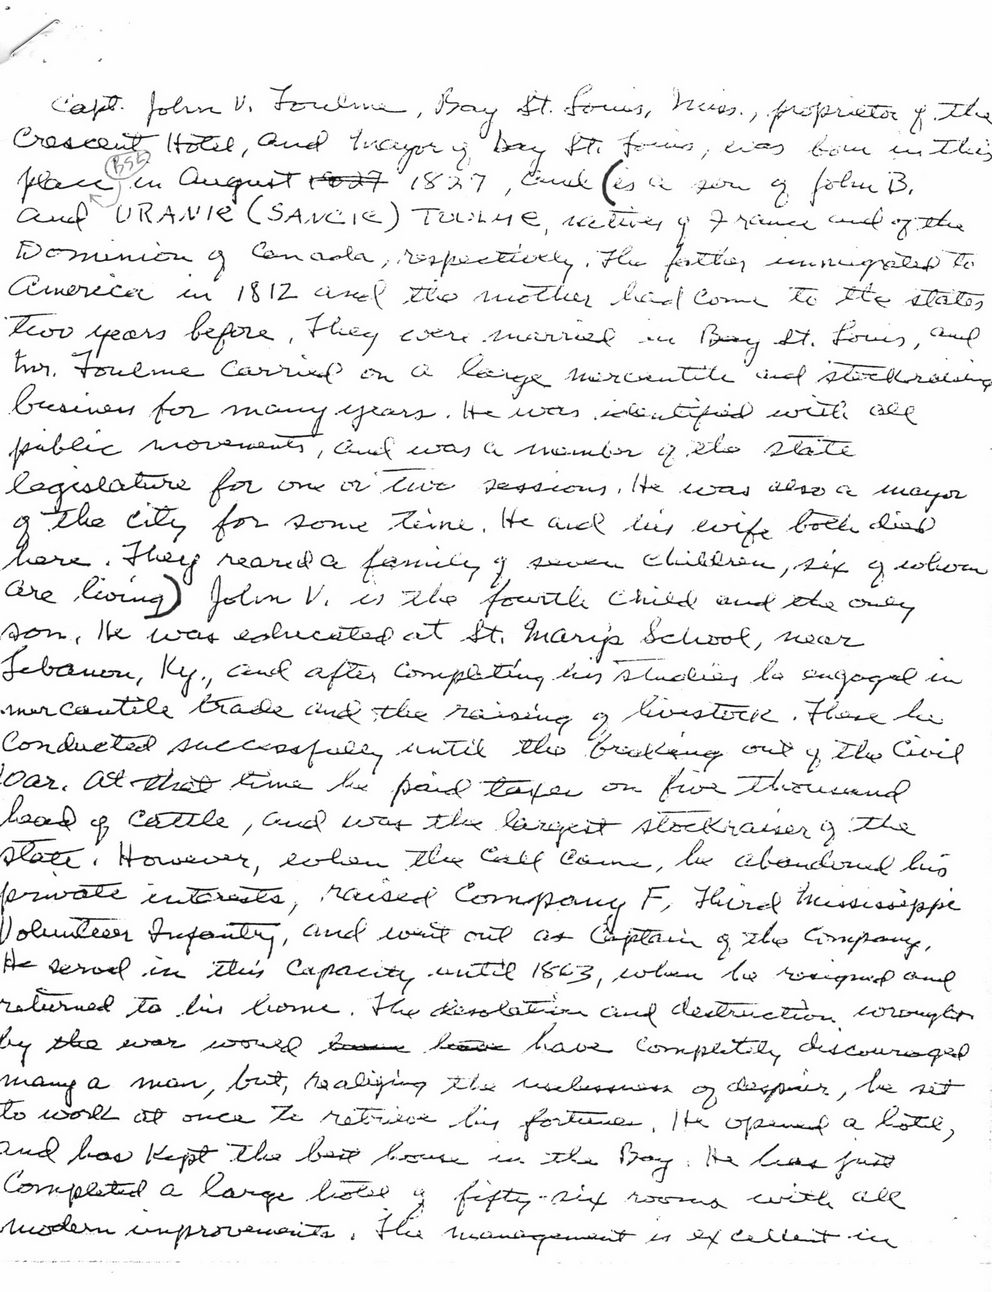 Capt. John V. Toulme, Bay St. Louis, Miss., proprietor of the
Crescent Hotel, and Mayor of Bay St. Louis, was born in this
BSL
place in August 1827 1827, and (is a son of John B.
and URANIE (SANCIE) TOULME, natives of France and of the
Dominion of Canada, respectively. The father immigrated to
America in 1812 and the mother had come to the states
two years before. They were married in Bay St. Louis, and
Mr. Toulme carried on a large mercantile and stockraising
business for many years. He was identified with all
public movements, and was a member of the state
legislature for one or two sessions. He was also a mayor
of the city for some time. He and his wife both died
here. They reared a family of seven children, six of whom
are living) John V. is the fourth child and the only
son. He was educated at St. Mary's School, near
Lebanon, Ky., and after completing his studies he engaged in
mercantile trade and the raising of livestock. These he
conducted successfully until the breaking out of the Civil
War. At that time he paid taxes on five thousand
head of cattle, and was the largest stockraiser of the
state. However, when the call came, he abandoned his
private interests, raised Company F, Third Mississippi
Volunteer Infantry, and went out as Captain of the Company.
He served in this capacity until 1863, when he resigned and
returned to his home. The desolation and destruction wrought
by the war would have have completely discouraged
many a man, but, realizing the uselessness of despair, he set
to work at once to retrieve his fortunes. He opened a hotel,
and has kept the best house in the Bay. He has just
completed a large hotel of fifty-six rooms with all
modern improvements. The management is excellent in